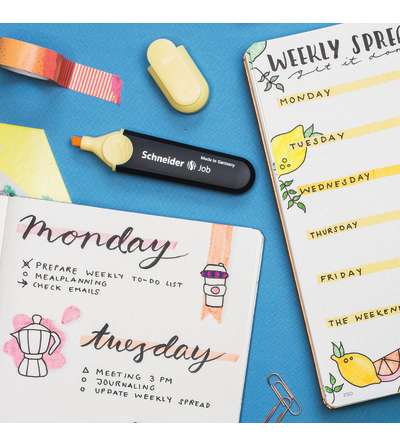 WEEKLY SPREA
get it don
MONDAY
TUESDAY
WEDNESDAY
THURSDAY
FRIDAY
THE WEEKEND
Schneider Job
Made in Germany
monday
PREPARE WEEKLY TO-DO LIST
MEALPLANNING
CHECK EMAILS
tuesday
MEETING 3 PM
JOURNALING
UPDATE WEEKLY SPREAD